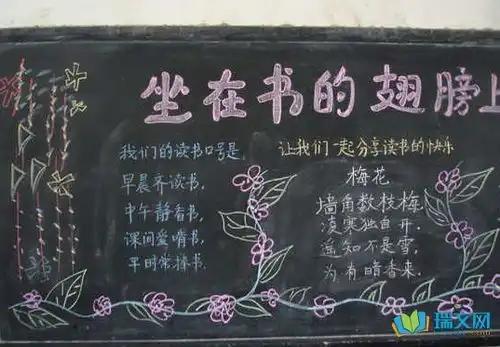 坐在书的翅膀上
我们的读书口号是
早晨齐读书,
中午静看书,
课间爱啃书,
平时常捧书.
让我们一起分享读书的快乐
梅花
墙角数枝梅,
凌寒独自开.
遥知不是雪,
为有暗香来.
瑞文网